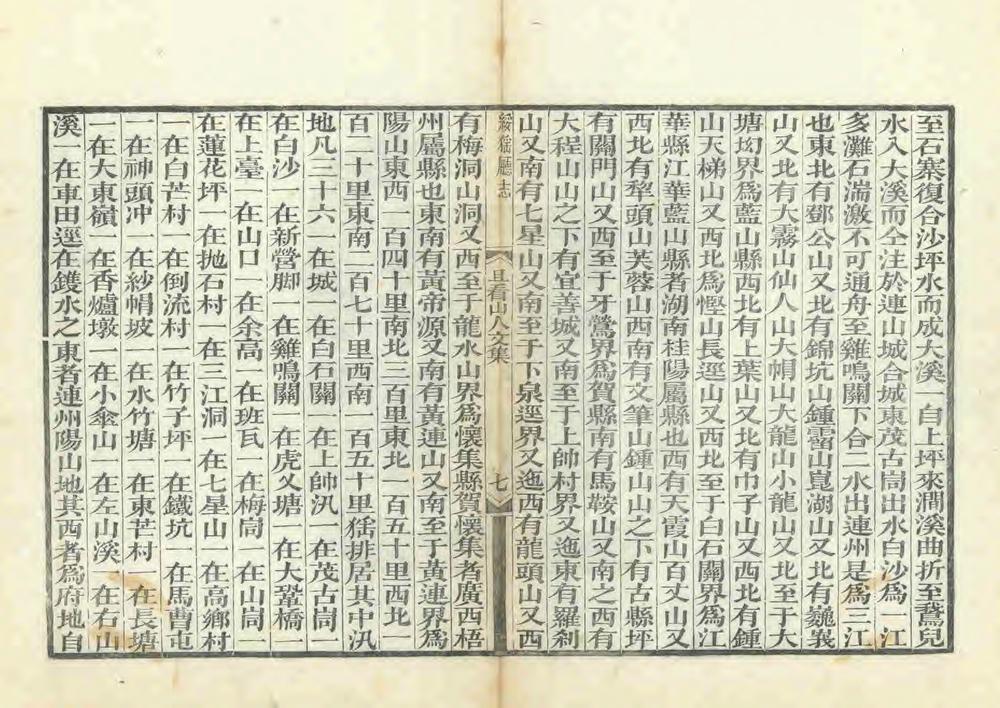 至石寨復合沙坪水而成大溪一自上坪來澗溪曲折至鵞兒
水入大溪而仝注於連山城合城東茂古峝出水白沙為一江
多灘石湍激不可通舟至雞鳴關下合二水出連州是為三江
也東北有鄧公山又北有錦坑山鍾霤山崑湖山又北有巍峩
山又北有大霧山仙人山大帽山大龍山小龍山又北至于大
塘㘭界為藍山縣西北有上葉山又北有巾子山又西北有鍾
山天梯山又西北為慳山長逕山又西北至于白石關界為江
華縣江華藍山縣者湖南桂陽屬縣也西有天霞山百丈山又
西北有犂頭山芙蓉山西南有文筆山鍾山山之下有古縣坪
有關門山又西至于牙鶯界為賀縣南有馬鞍山又南之西有
大程山山之下有宜善城又南至于上帥村界又迤東有羅剎
山又南有七星山又南至于下泉逕界又迤西有龍頭山又西
綏猺廳志 且看山人文集 七
有梅洞山洞又西至于龍水山界為懷集縣賀懷集者廣西梧
州屬縣也東南有黃帝源又南有黃連山又南至于黃連界為
陽山東西一百四十里南北三百里東北一百五十里西北一
百二十里東南二百七十里西南一百五十里猺排居其中汛
地凡三十六一在城一在白石關一在上帥汛一在茂古峝一
在白沙一在新營脚一在雞鳴關一在虎叉塘一在大鞏橋一
在上臺一在山口一在余高一在班瓦一在梅峝一在山峝一
在蓮花坪一在拋石村一在三江洞一在七星山一在高鄉村
一在白芒村一在倒流村一在竹子坪一在鐵坑一在馬曹屯
一在神頭冲一在紗帽坡一在水竹塘一在東芒村一在長塘
一在大東嶺一在香爐墩一在小傘山一在左山溪一在右山
溪一在車田逕在鑊水之東者連州陽山地其西者為府地自